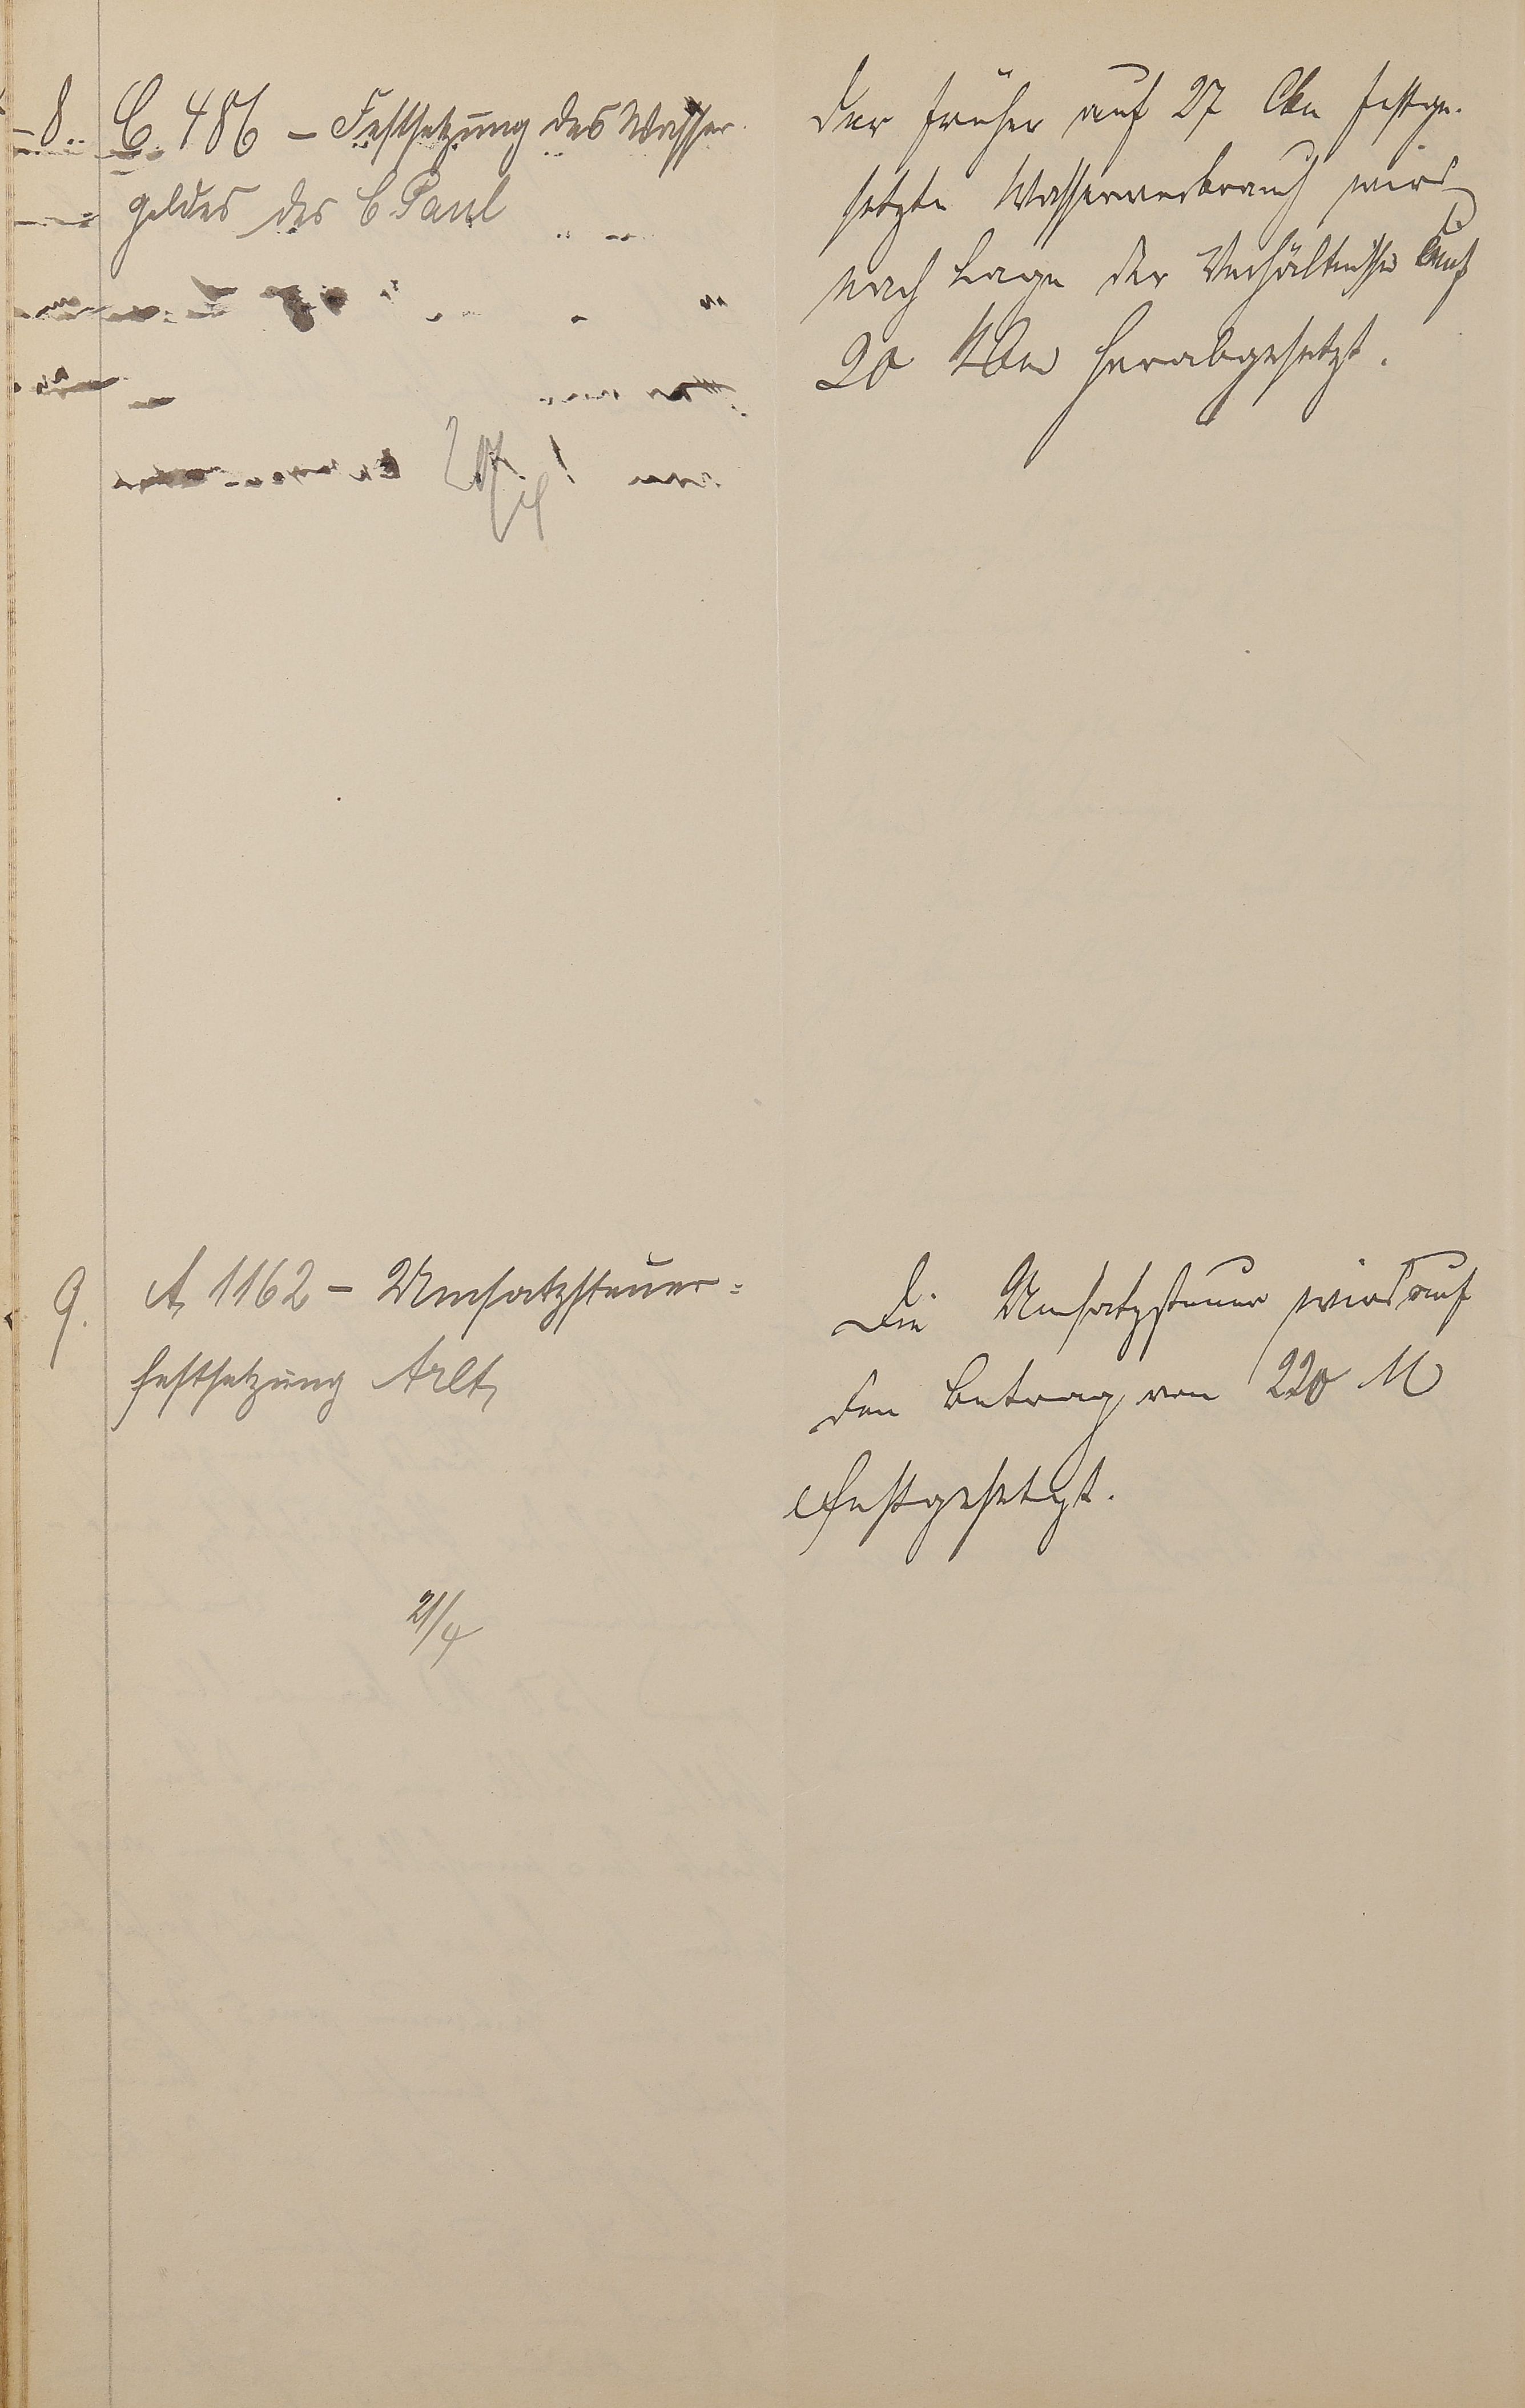 8. C. 486 – Festsetzung des Wasser-
geldes des C Paul
Der früher auf 27 Cbm festge-
setzte Wasserverbrauch wird
nach Lage der Verhältnisse auf
20 Cbm herabgesetzt.
9. A 1162 – Umsatzsteuer=
festsetzung Arlt
21/4
Die Umsatzsteuer wird auf
den Betrag von 220 M
festgesetzt.